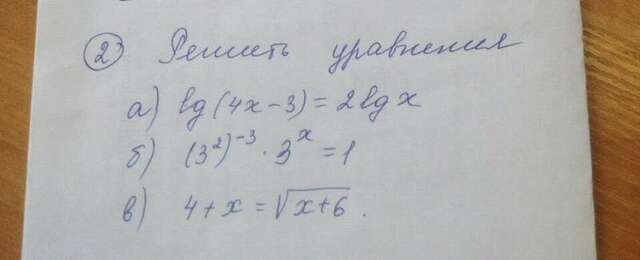 ② Решить уравнения
а) lg(4x-3)=2lgx
б) (3²)⁻³·3ˣ=1
в) 4+x=√(x+6).